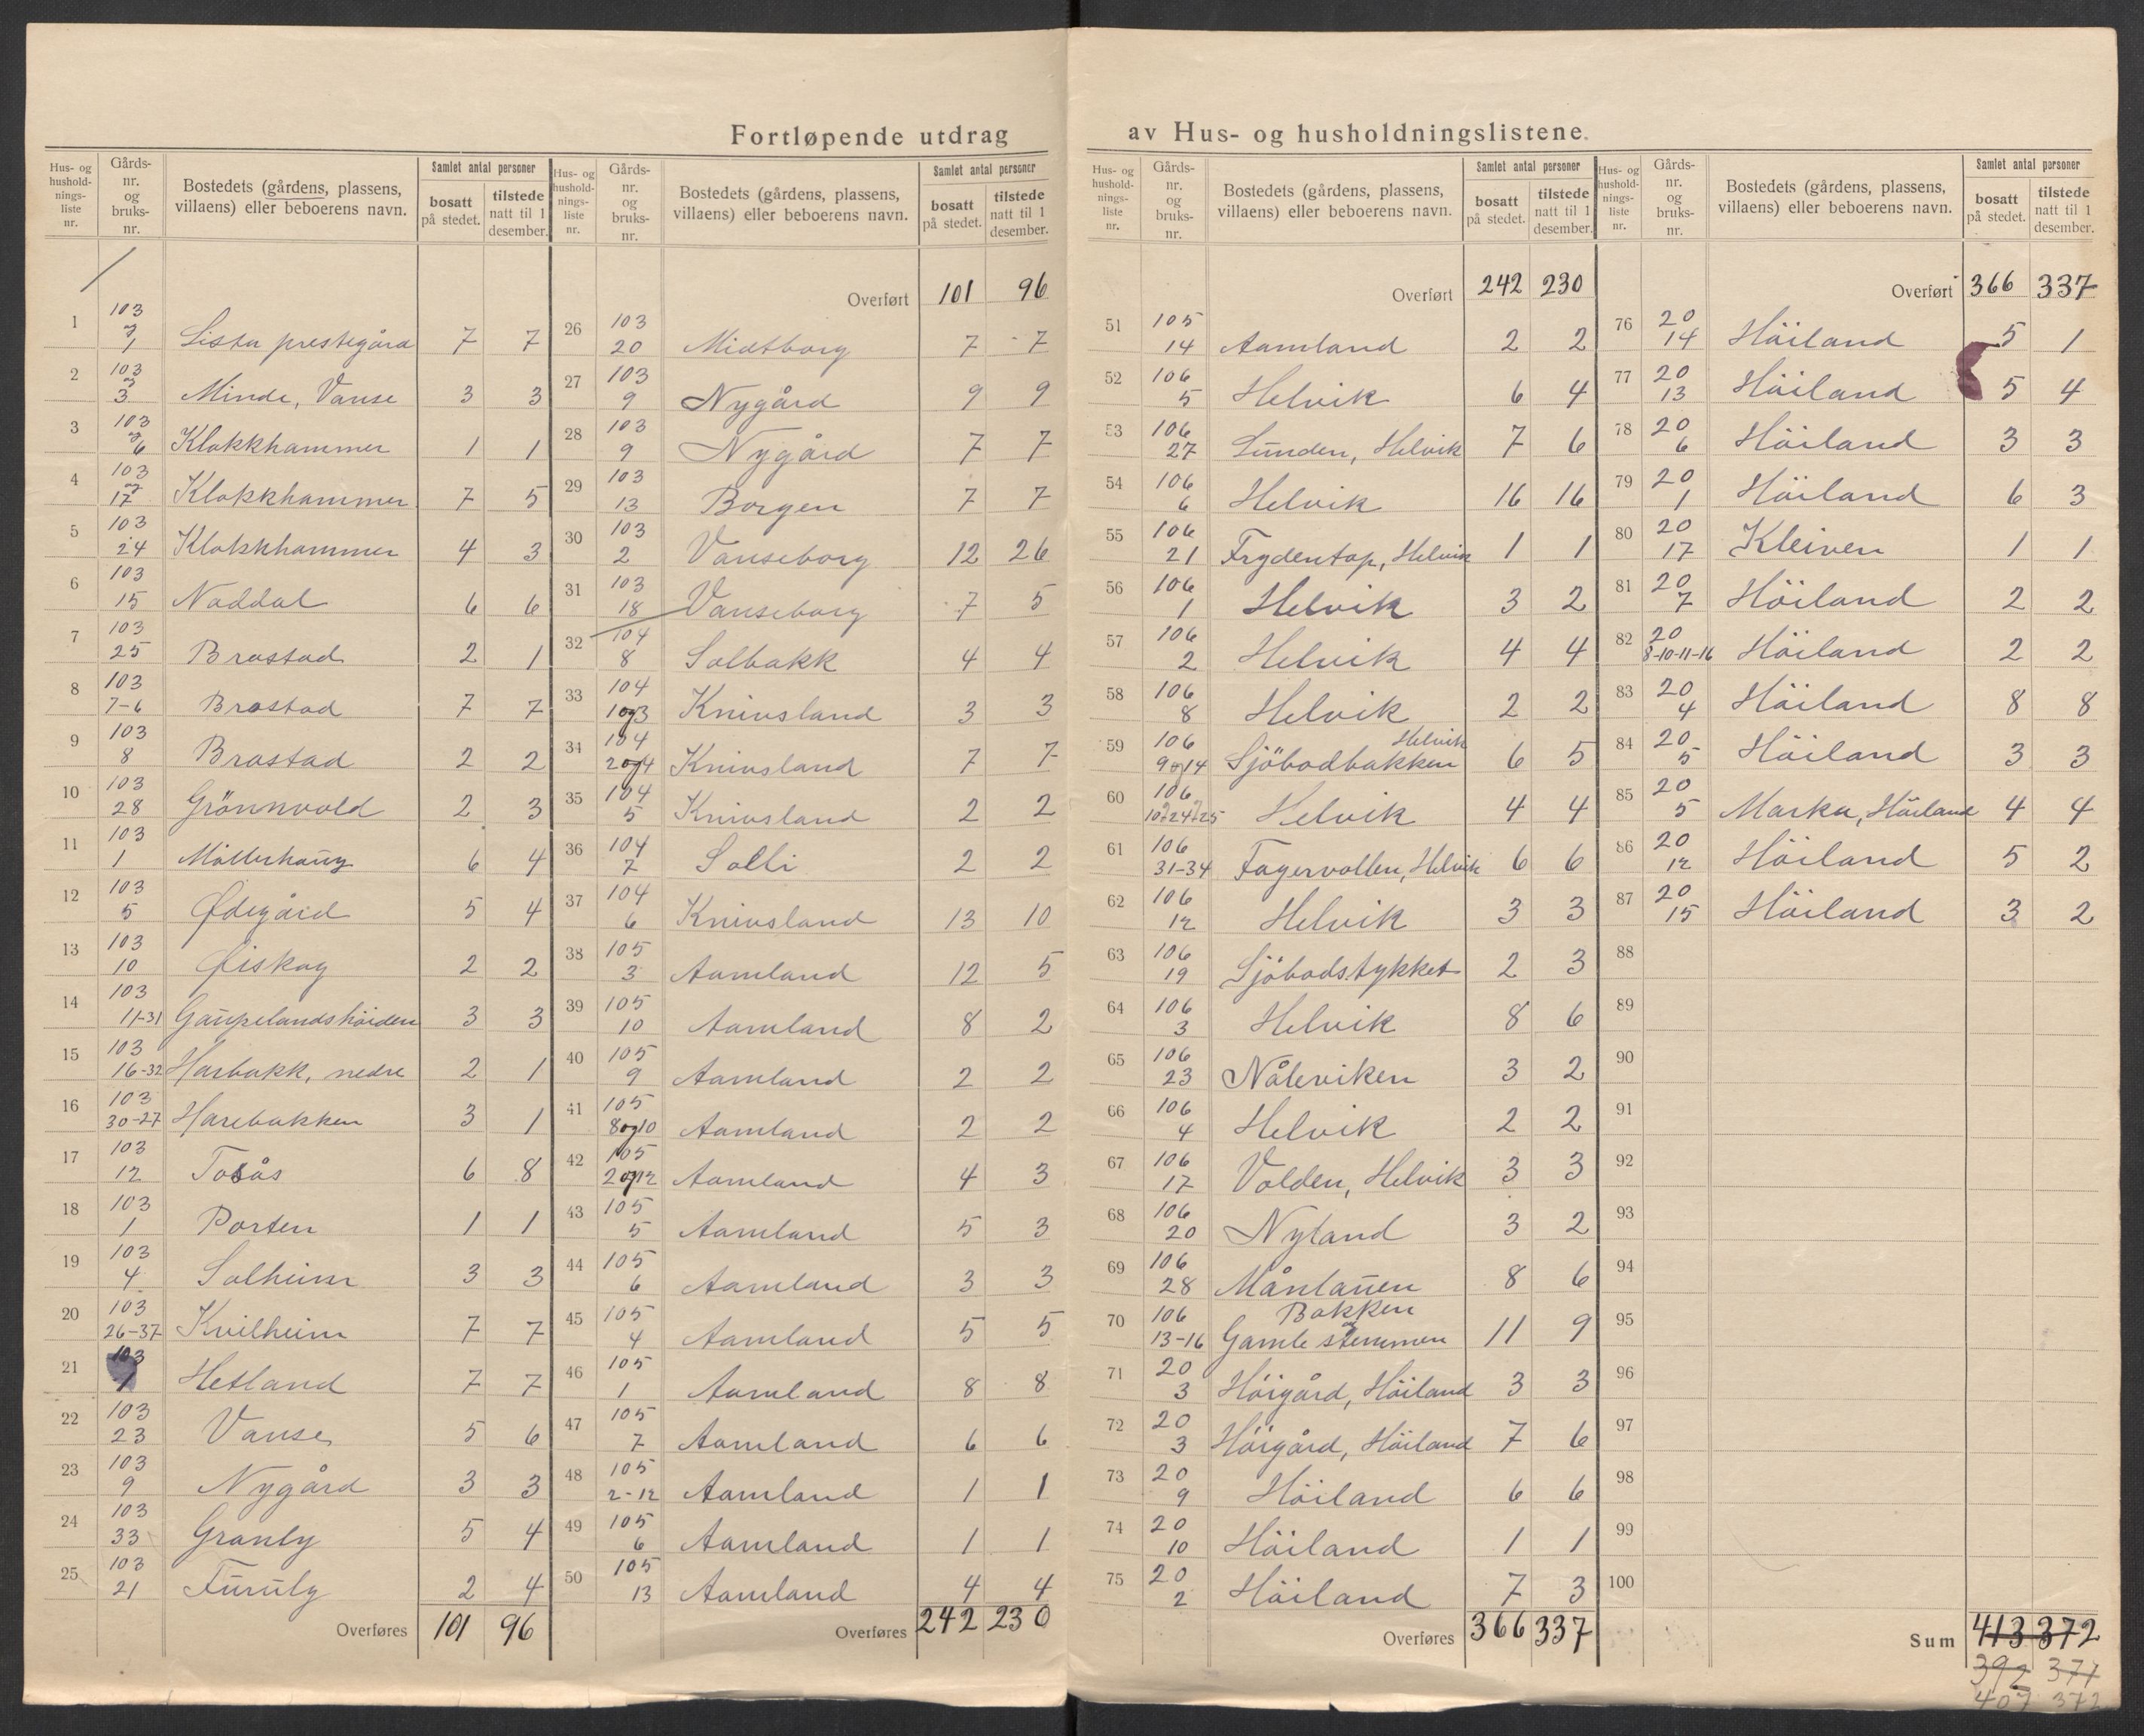 Fortløpende utdrag av Hus- og husholdningslistene.
Hus- og husholdnings-liste nr. | Gårds-nr. og bruks-nr. | Bostedets (gårdens, plassens, villaens) eller beboerens navn. | Samlet antal personer: bosatt på stedet. | tilstede natt til 1 desember.
1 | 103 7/1 | Lista prestegård | 7 | 7
2 | 103 3 | Minde, Vanse | 3 | 3
3 | 103 6 | Klokkhammer | 1 | 1
4 | 103 17 | Klokkhammer | 7 | 5
5 | 103 24 | Klokkhammer | 4 | 3
6 | 103 15 | Noddal | 6 | 6
7 | 103 25 | Brastad | 2 | 1
8 | 103 7-6 | Brastad | 7 | 7
9 | 103 8 | Brastad | 2 | 2
10 | 103 28 | Grönnvold | 2 | 3
11 | 103 1 | Möllerhaug | 6 | 4
12 | 103 5 | Ødegård | 5 | 4
13 | 103 10 | Øiskog | 2 | 2
14 | 103 11-31 | Gaupelandshöiden | 3 | 3
15 | 103 16-32 | Harbakk, nedre | 2 | 1
16 | 103 30-27 | Harebakken | 3 | 1
17 | 103 12 | Tosås | 6 | 8
18 | 103 1 | Porten | 1 | 1
19 | 103 4 | Solheim | 3 | 3
20 | 103 26-37 | Kvilheim | 7 | 7
21 | 103 1 | Hetland | 7 | 7
22 | 103 23 | Vanse | 5 | 6
23 | 103 9 | Nygård | 3 | 3
24 | 103 33 | Granly | 5 | 4
25 | 103 21 | Furuly | 2 | 4
Overføres | 101 | 96
Hus- og husholdnings-liste nr. | Gårds-nr. og bruks-nr. | Bostedets (gårdens, plassens, villaens) eller beboerens navn. | Samlet antal personer: bosatt på stedet. | tilstede natt til 1 desember.
Overført | 101 | 96
26 | 103 20 | Midtborg | 7 | 7
27 | 103 9 | Nygård | 9 | 9
28 | 103 9 | Nygård | 7 | 7
29 | 103 13 | Borgen | 7 | 7
30 | 103 2 | Vanseborg | 12 | 26
31 | 103 18 | Vanseborg | 7 | 5
32 | 104 8 | Solbakk | 4 | 4
33 | 104 1 og 3 | Knivsland | 3 | 3
34 | 104 2 og 4 | Knivsland | 7 | 7
35 | 104 5 | Knivsland | 2 | 2
36 | 104 7 | Solli | 2 | 2
37 | 104 6 | Knivsland | 13 | 10
38 | 105 3 | Aamland | 12 | 5
39 | 105 10 | Aamland | 8 | 2
40 | 105 9 | Aamland | 2 | 2
41 | 105 8 og 10 | Aamland | 2 | 2
42 | 105 2 og 12 | Aamland | 4 | 3
43 | 105 5 | Aamland | 5 | 3
44 | 105 6 | Aamland | 3 | 3
45 | 105 4 | Aamland | 5 | 5
46 | 105 1 | Aamland | 8 | 8
47 | 105 7 | Aamland | 6 | 6
48 | 105 2-12 | Aamland | 1 | 1
49 | 105 6 | Aamland | 1 | 1
50 | 105 13 | Aamland | 4 | 4
Overføres | 242 | 230
Hus- og husholdnings-liste nr. | Gårds-nr. og bruks-nr. | Bostedets (gårdens, plassens, villaens) eller beboerens navn. | Samlet antal personer: bosatt på stedet. | tilstede natt til 1 desember.
Overført | 242 | 230
51 | 105 14 | Aamland | 2 | 2
52 | 106 5 | Helvik | 6 | 4
53 | 106 27 | Lunden, Helvik | 7 | 6
54 | 106 6 | Helvik | 16 | 16
55 | 106 21 | Frydentop, Helvik | 1 | 1
56 | 106 1 | Helvik | 3 | 2
57 | 106 2 | Helvik | 4 | 4
58 | 106 8 | Helvik | 2 | 2
59 | 106 9 og 14 | Sjöbodbakken Helvik | 6 | 5
60 | 106 10+24+25 | Helvik | 4 | 4
61 | 106 31-34 | Fagervollen, Helvik | 6 | 6
62 | 106 12 | Helvik | 3 | 3
63 | 106 19 | Sjöbodstykket | 2 | 3
64 | 106 3 | Helvik | 8 | 6
65 | 106 23 | Nåleviken | 3 | 2
66 | 106 4 | Helvik | 2 | 2
67 | 106 17 | Volden, Helvik | 3 | 3
68 | 106 20 | Nyland | 3 | 2
69 | 106 28 | Månlauen | 8 | 6
70 | 106 13-16 | Bakken og Gamle stemmen | 11 | 9
71 | 20 3 | Höigård, Höiland | 3 | 3
72 | 20 3 | Höigård, Höiland | 7 | 6
73 | 20 9 | Höiland | 6 | 6
74 | 20 10 | Höiland | 1 | 1
75 | 20 2 | Höiland | 7 | 3
Overføres | 366 | 337
Hus- og husholdnings-liste nr. | Gårds-nr. og bruks-nr. | Bostedets (gårdens, plassens, villaens) eller beboerens navn. | Samlet antal personer: bosatt på stedet. | tilstede natt til 1 desember.
Overført | 366 | 337
76 | 20 14 | Höiland | 5 | 1
77 | 20 13 | Höiland | 5 | 4
78 | 20 6 | Höiland | 3 | 3
79 | 20 1 | Höiland | 6 | 3
80 | 20 17 | Kleiven | 1 | 1
81 | 20 7 | Höiland | 2 | 2
82 | 20 8-10-11-16 | Höiland | 2 | 2
83 | 20 4 | Höiland | 8 | 8
84 | 20 5 | Höiland | 3 | 3
85 | 20 5 | Marka, Höiland | 4 | 4
86 | 20 12 | Höiland | 5 | 2
87 | 20 15 | Höiland | 3 | 2
88
89
90
91
92
93
94
95
96
97
98
99
100
Sum | 413 | 372
392 377
407 372